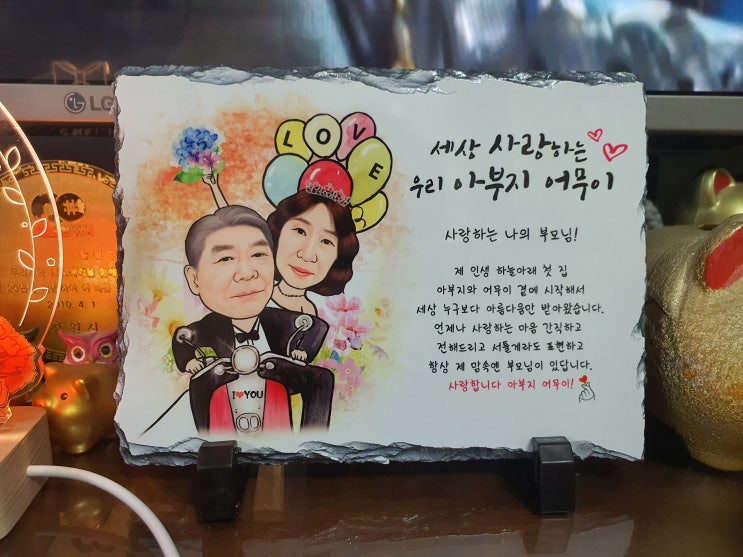 LG
LOVE
세상 사랑하는
우리 아부지 어무이
사랑하는 나의 부모님!
제 인생 하늘아래 첫 집
아부지와 어무이 곁에 시작해서
세상 누구보다 아름다움만 받아왔습니다.
언제나 사랑하는 마음 간직하고
전해드리고 서툴게라도 표현하고
항상 제 맘속엔 부모님이 있답니다.
사랑합니다 아부지 어무이!
I♥YOU
2010. 4. 1